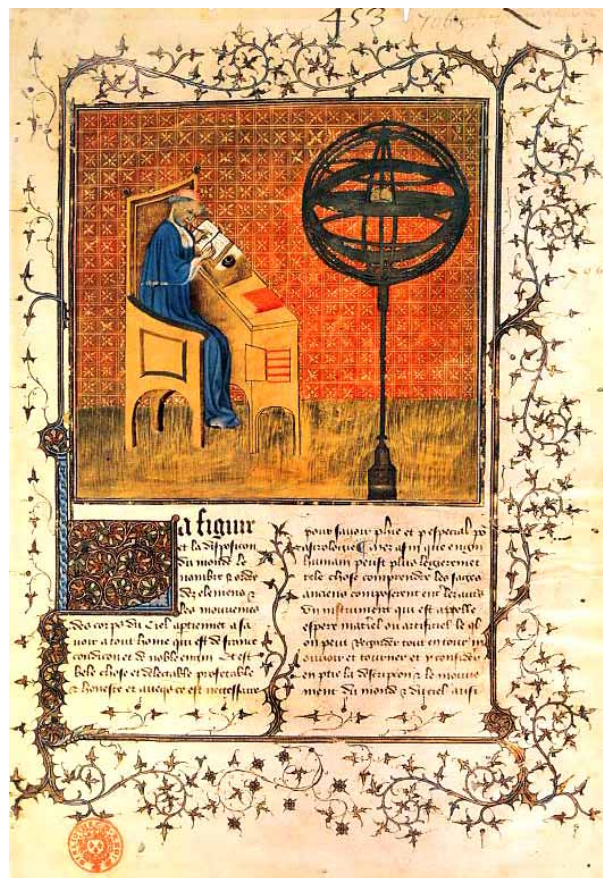 453 7065
la figure
et la disposicion
du monde le
nombre & ordre
des elemens &
les mouvemens
des corps du Ciel aptiennent a sa
voir a tout home qui est de france
condicion et de noble engin Et est
bele chose et delectable profetable
& honeste et avec ce est necessaire
pour savoir phie et p especial po
astrologie Car afin que engin
humain peust plus legierement
tele chose comprendre les sages
anciens composerent
un instrument qui est appelle
espere materiel ou artificiel le ql
on peut regarder tout entour m
ouvoir et tourner et y considerer
en ptie la descripcion & le mouve
ment du monde & du ciel aussi